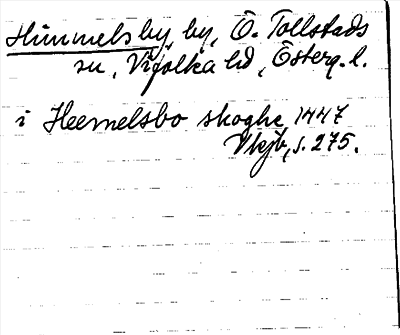 Himmelsby by, Ö. Tollstads
sn, Vifolka hd, Österg. l.
i Heemelsbo skoghe 1447
Vkjb, s. 275.